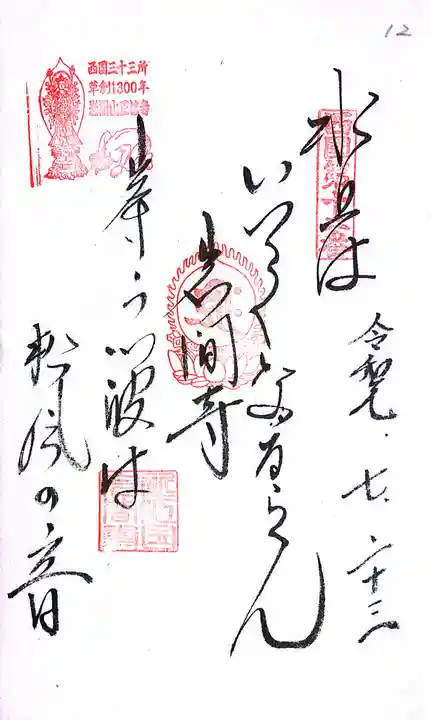 12
西国第十二番
水上は
令和元.七.二十三
いつくなるらん
岩間寺
岸うつ波は
松風の音
西国三十三所
草創1300年
岩間山正法寺